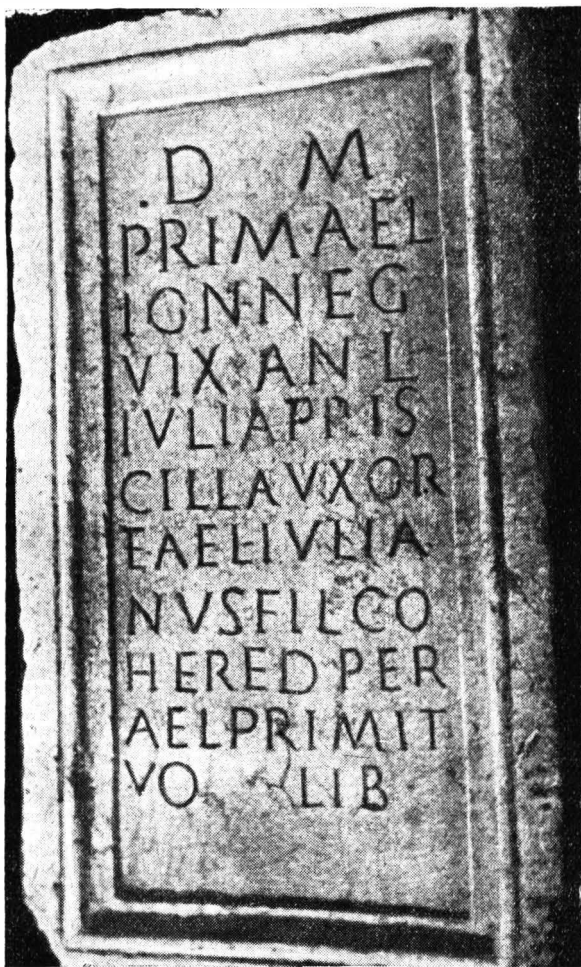 D M
PRIMAEL
IONNEG
VIXANL
IVLIAPRIS
CILLAVXOR
EAELIVLIA
NVSFILCO
HEREDPER
AELPRIMIT
VO LIB